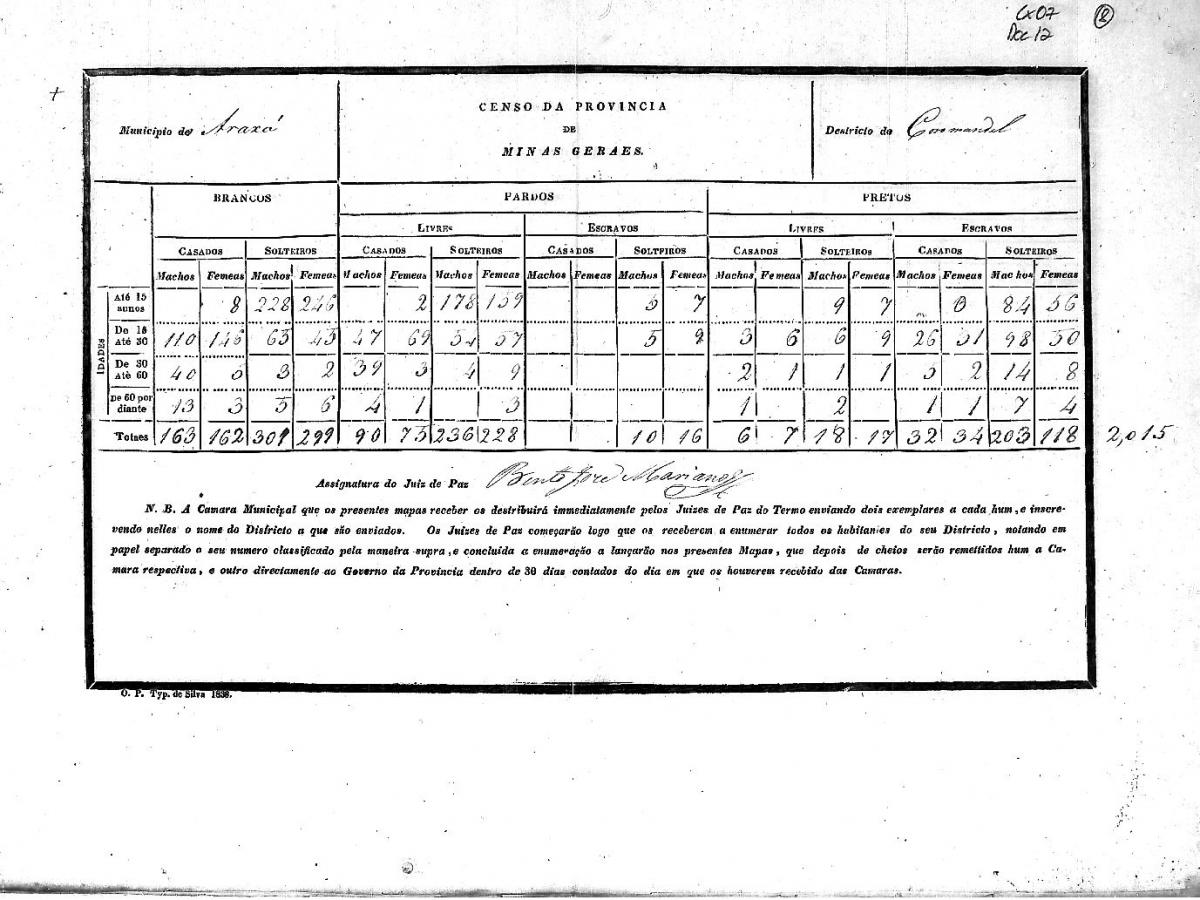 Cx07
Doc 12
2
Municipio de Araxá
CENSO DA PROVINCIA
DE
MINAS GERAES.
Destricto do Coromandel
BRANCOS PARDOS PRETOS
LIVRES ESCRAVOS LIVRES ESCRAVOS
CASADOS SOLTEIROS CASADOS SOLTEIROS CASADOS SOLTEIROS CASADOS SOLTEIROS CASADOS SOLTEIROS
Machos Femeas Machos Femeas Machos Femeas Machos Femeas Machos Femeas Machos Femeas Machos Femeas Machos Femeas Machos Femeas Machos Femeas
IDADES
Até 15 annos 8 228 246 2 178 159 5 7 9 7 0 84 56
De 15 Até 30 110 146 65 45 47 69 54 57 5 9 3 6 6 9 26 31 98 50
De 30 Até 60 40 5 3 2 39 3 4 9 2 1 1 1 5 2 14 8
De 60 por diante 13 3 5 6 4 1 3 1 2 1 1 7 4
Totaes 163 162 301 299 90 75 236 228 10 16 6 7 18 17 32 34 203 118 2,015
Assignatura do Juiz de Paz Bento José Mariano
N. B. A Camara Municipal que os presentes mapas receber os destribuirá immediatamente pelos Juizes de Paz do Termo enviando dois exemplares a cada hum, e inscre-
vendo nelles o nome do Districto a que são enviados. Os Juizes de Paz começarão logo que os receberem a enumerar todos os habitantes do seu Districto, notando em
papel separado o seu numero classificado pela maneira supra, e concluida a enumeração a lançarão nos presentes Mapas, que depois de cheios serão remettidos hum a Ca-
mara respectiva, e outro directamente ao Governo da Provincia dentro de 30 dias contados do dia em que os houverem recebido das Camaras.
O. P. Typ. de Silva 1838.